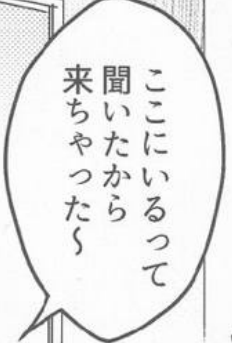 ここにいるって
聞いたから
来ちゃった～